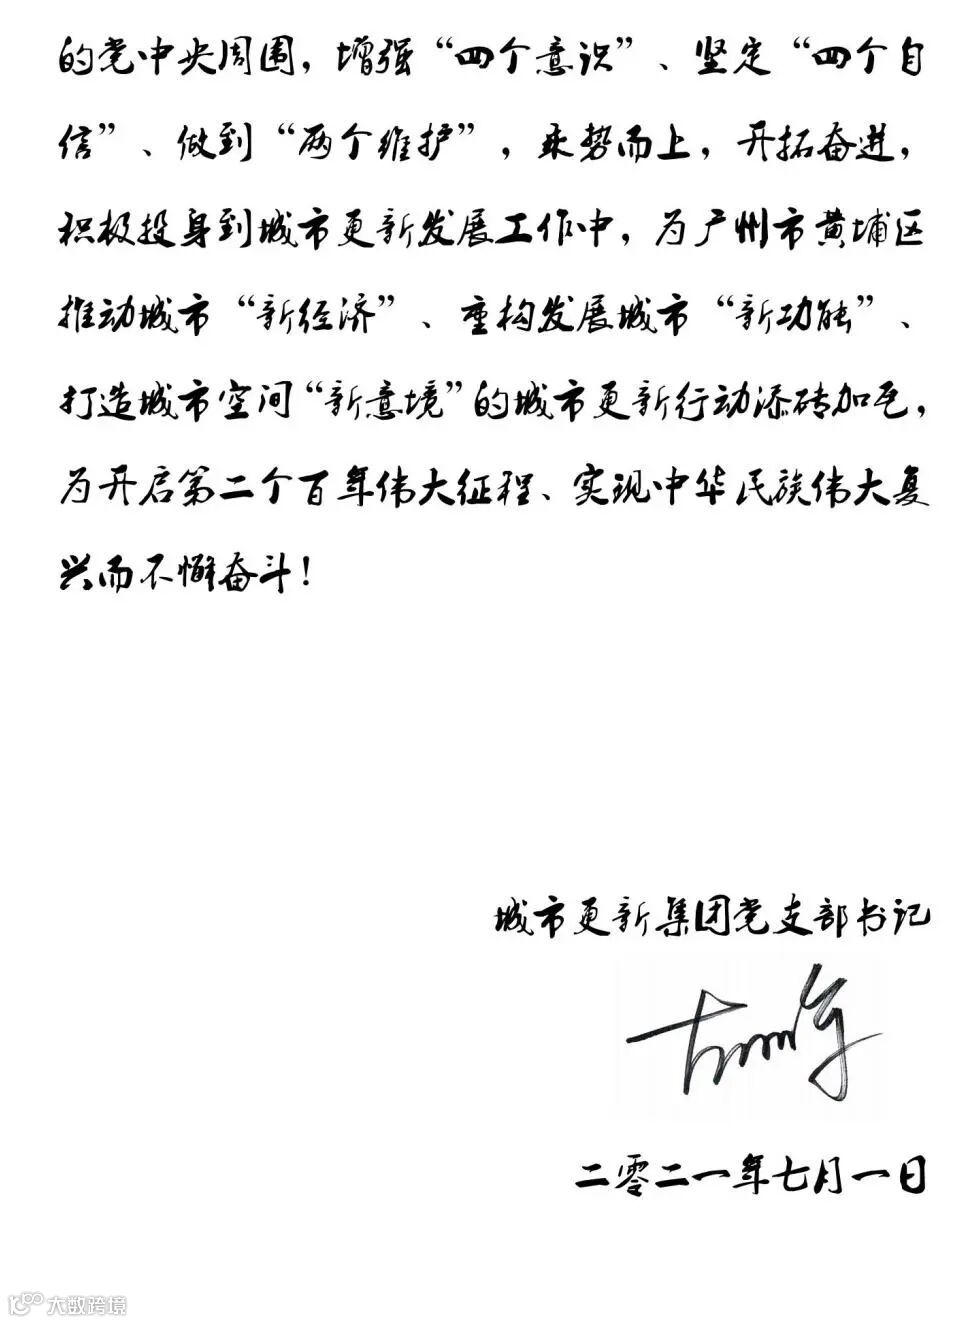 的党中央周围，增强“四个意识”、坚定“四个自
信”、做到“两个维护”，乘势而上，开拓奋进，
积极投身到城市更新发展工作中，为广州市黄埔区
推动城市“新经济”、重构发展城市“新功能”、
打造城市空间“新意境”的城市更新行动添砖加瓦，
为开启第二个百年伟大征程、实现中华民族伟大复
兴而不懈奋斗！
城市更新集团党支部书记
二零二一年七月一日
大数跨境